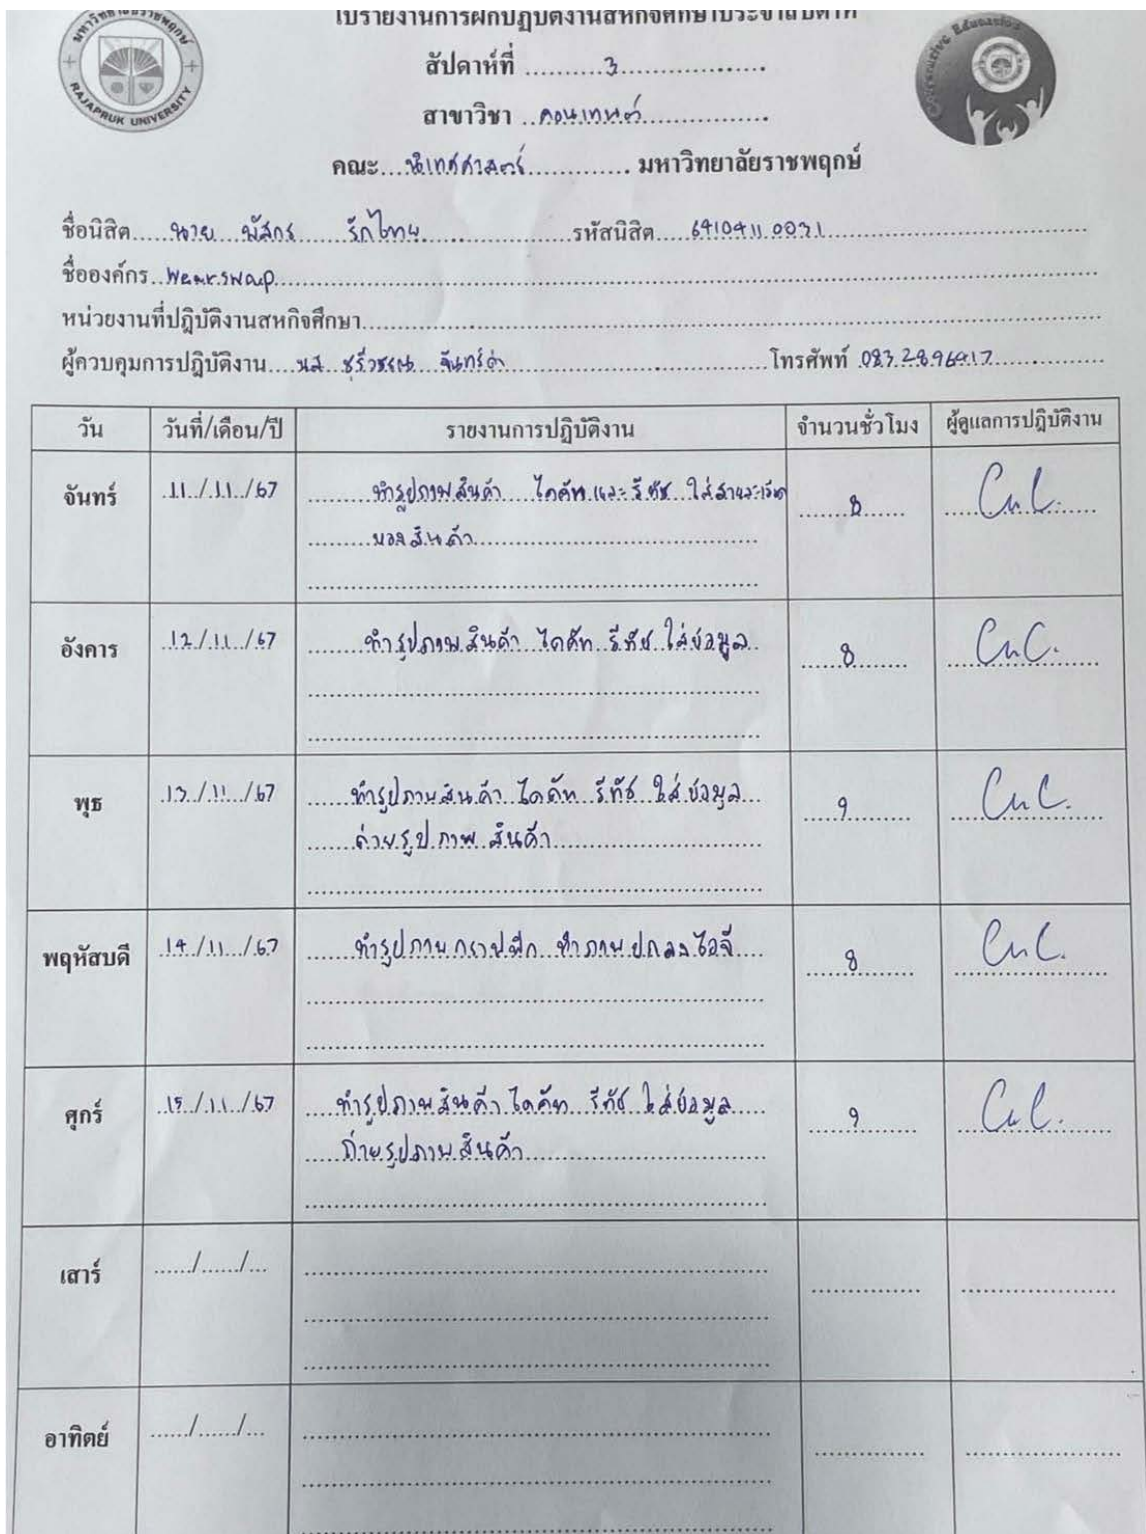 ใบรายงานการฝึกปฏิบัติงานสหกิจศึกษาประจำสัปดาห์
มหาวิทยาลัยราชพฤกษ์
RAJAPRUK UNIVERSITY
Cooperative Education
สัปดาห์ที่ ..........3..................
สาขาวิชา ..คอนเทนต์................
คณะ....นิเทศศาสตร์............. มหาวิทยาลัยราชพฤกษ์
ชื่อนิสิต.....นาย พัสกร รักไทย...................รหัสนิสิต.....6410411 0031
ชื่อองค์กร..Wearswap
หน่วยงานที่ปฏิบัติงานสหกิจศึกษา
ผู้ควบคุมการปฏิบัติงาน....นส. จันทร์ดำ โทรศัพท์ 083 2896917
วัน วันที่/เดือน/ปี รายงานการปฏิบัติงาน จำนวนชั่วโมง ผู้ดูแลการปฏิบัติงาน
จันทร์ 11/11/67 ทำรูปภาพสินค้า ไดคัท และ รีทัช ใส่รายละเอียด 8
ของสินค้า
อังคาร 12/11/67 ทำรูปภาพสินค้า ไดคัท รีทัช ใส่ข้อมูล 8 CnC.
พุธ 13/11/67 ทำรูปภาพสินค้า ไดคัท รีทัช ใส่ข้อมูล 9 CnC.
ถ่ายรูปภาพสินค้า
พฤหัสบดี 14/11/67 ทำรูปภาพกราฟฟิก ทำภาพปกลงไอจี 8 CnC.
ศุกร์ 15/11/67 ทำรูปภาพสินค้า ไดคัท รีทัช ใส่ข้อมูล 9
ถ่ายรูปภาพสินค้า
เสาร์ ....../....../...
อาทิตย์ ....../....../...